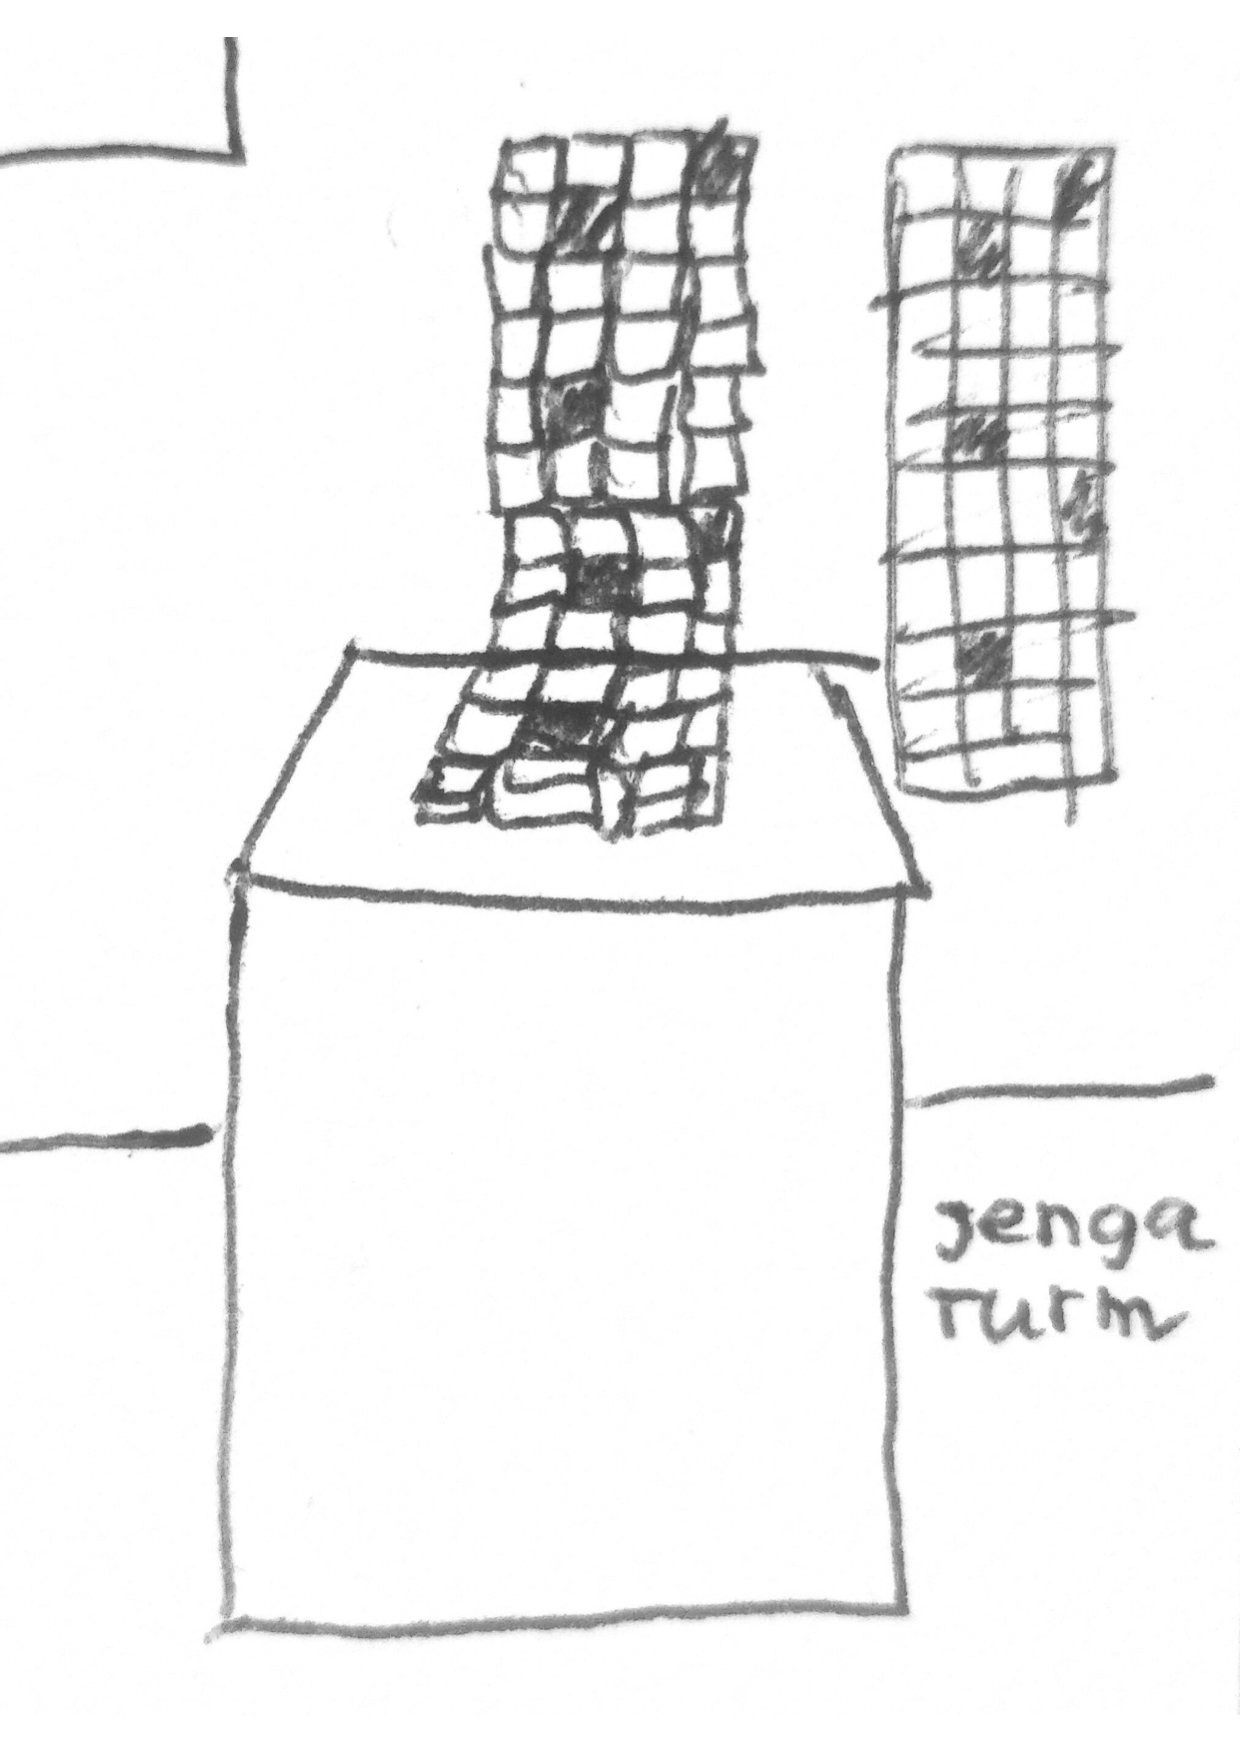 Jenga
Turm